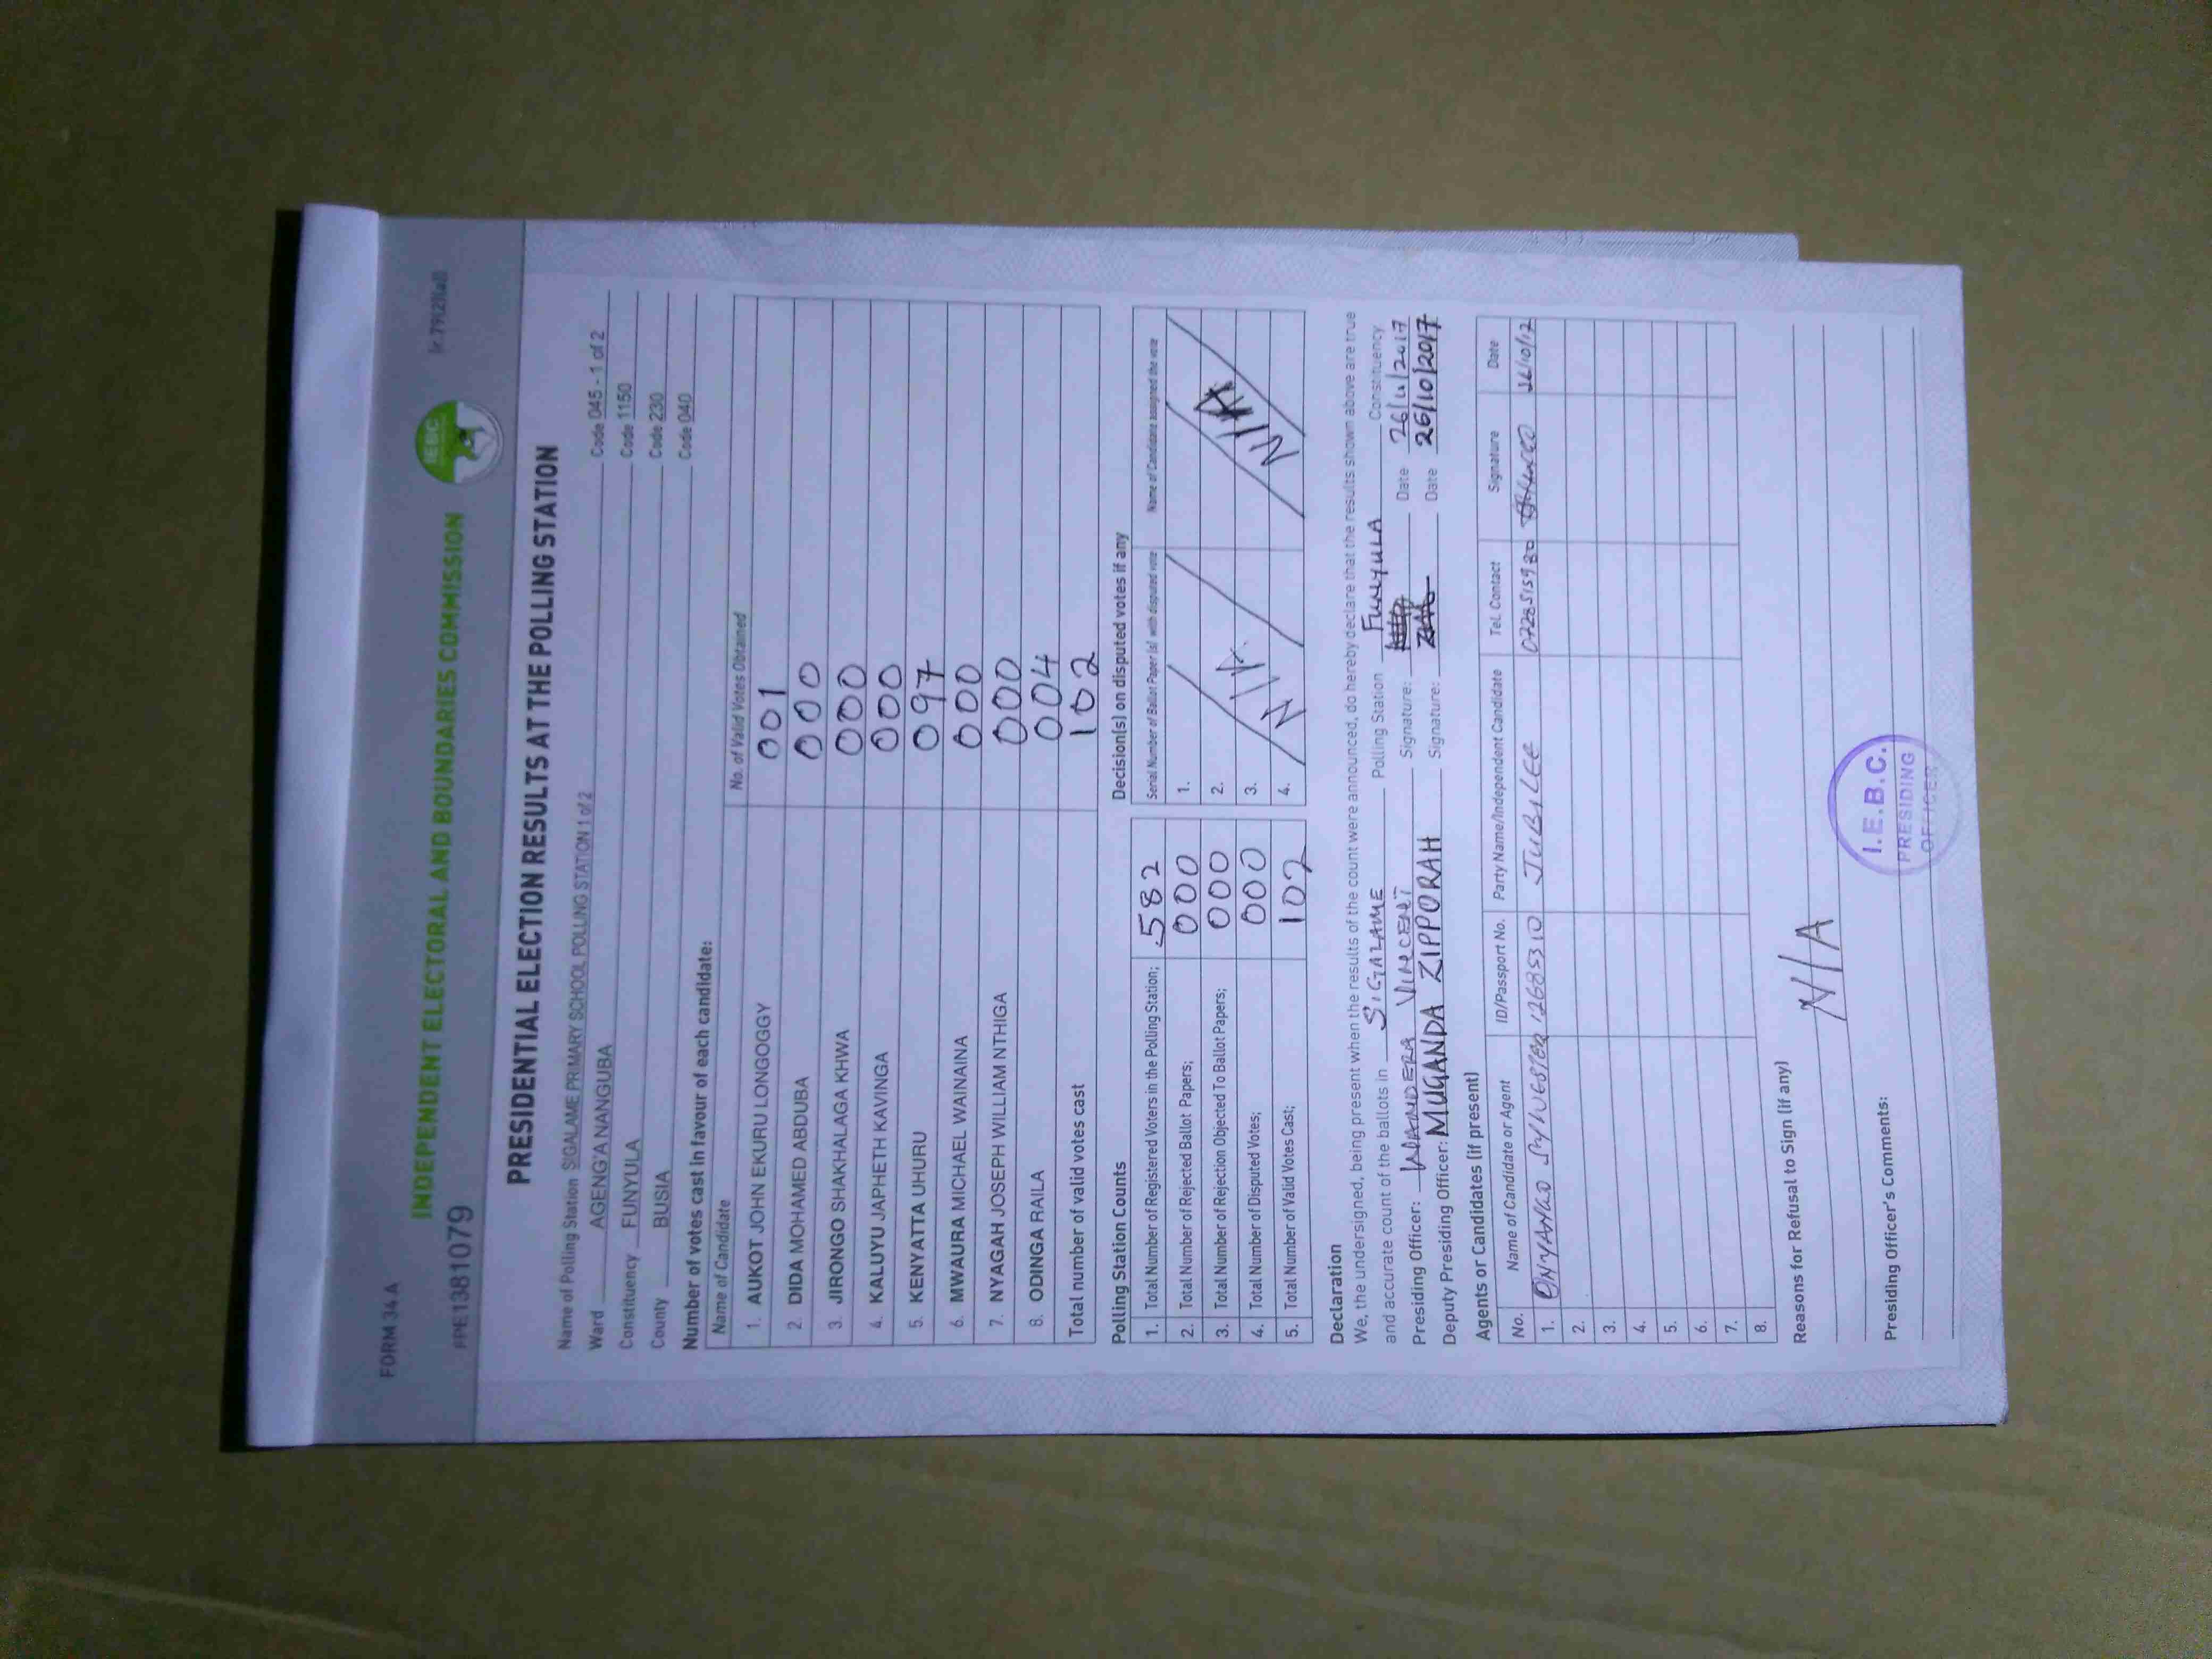 FORM 34 A
INDEPENDENT ELECTORAL AND BOUNDARIES COMMISSION
IEBC
PRESIDENTIAL ELECTION RESULTS AT THE POLLING STATION
Name of Polling Station SIGALAME PRIMARY SCHOOL POLLING STATION 1 of 2 Code 045 - 1 of 2
Ward AGENG'A NANGUBA Code 1150
Constituency FUNYULA Code 230
County BUSIA Code 040
Number of votes cast in favour of each candidate:
Name of Candidate No. of Valid Votes Obtained
1. AUKOT JOHN EKURU LONGOGGY 001
2. DIDA MOHAMED ABDUBA 000
3. JIRONGO SHAKHALAGA KHWA 000
4. KALUYU JAPHETH KAVINGA 000
5. KENYATTA UHURU 097
6. MWAURA MICHAEL WAINAINA 000
7. NYAGAH JOSEPH WILLIAM NTHIGA 000
8. ODINGA RAILA 004
Total number of valid votes cast 102
Polling Station Counts
1. Total Number of Registered Voters in the Polling Station; 582
2. Total Number of Rejected Ballot Papers; 000
3. Total Number of Rejection Objected To Ballot Papers; 000
4. Total Number of Disputed Votes; 000
5. Total Number of Valid Votes Cast; 102
Decision(s) on disputed votes if any
Serial Number of Ballot Paper (s) with disputed vote Name of Candidate assigned the vote
1.
2. N/A N/A
3.
4. N/A N/A
Declaration
We, the undersigned, being present when the results of the count were announced, do hereby declare that the results shown above are true
and accurate count of the ballots in SIGALAME Polling Station FUNYULA Constituency
Presiding Officer: WANDERA VINCENT Signature: Date
Deputy Presiding Officer: MUGANDA ZIPPORAH Signature: Date 26/10/2017
Agents or Candidates (if present)
No. Name of Candidate or Agent ID/Passport No. Party Name/Independent Candidate Tel. Contact Signature Date
1. ONYANGO 12685310 JUBILEE 26/10/17
2.
3.
4.
5.
6.
7.
8.
Reasons for Refusal to Sign (if any)
N/A
Presiding Officer's Comments:
I.E.B.C.
PRESIDING
OFFICER